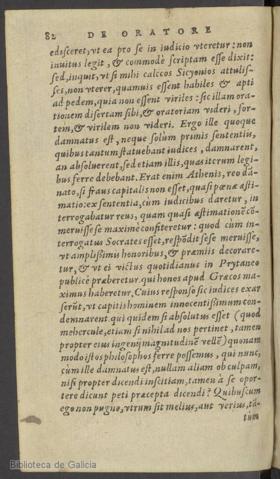 82 DE ORATORE
edisceret, vt ea pro se in iudicio vteretur: non
inuitus legit, & commodè scriptam esse dixit:
sed, inquit, vt si mihi calceos Sicyonios attulis-
ses, non vterer, quamuis essent habiles & apti
ad pedem, quia non essent viriles: sic illam ora-
tionem disertam sibi, & oratoriam videri, for-
tem, & virilem non videri. Ergo ille quoque
damnatus est, neque solùm primis sententiis,
quibus tantum statuebant iudices, damnarent,
an absoluerent, sed etiam illis, quas iterum legi-
bus ferre debebant. Erat enim Athenis, reo da-
nato, si fraus capitalis non esset, quasi pœnæ æsti-
matio: ex sententia, cùm iudicibus daretur, in
terrogabatur reus, quam quasi æstimationē cō-
meruisse se maximè confiteretur: quod cùm in-
terrogatus Socrates esset, respōdit sese meruisse,
vt amplissimis honoribus, & præmiis decorare-
tur, & vt ei victus quotidianus in Prytaneo
publicè præberetur. qui honos apud Græcos ma-
ximus haberetur, Cuius responso sic iudices exar
serūt, vt capitis hominem innocentissimum con-
demnarent. qui quidem si absolutus esset (quod
mehercule, etiam si nihil ad nos pertinet, tamen
propter eius ingenij magnitudinē vellē) quonam
modo istos philosophos ferre possemus, qui nunc,
cùm ille damnatus est, nullam aliam ob culpam,
nisi propter dicendi inscitiam, tamen à se opor-
tere dicunt peti præcepta dicendi? Quibuscum
ego non pugno, vtrum sit melius, aut verius, tā-
tum
Biblioteca de Galicia